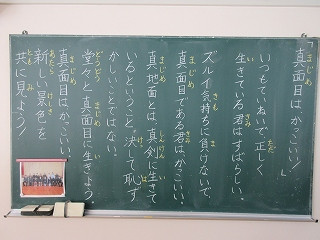 「真面目はかっこいい!」
いつもていねいで、正しく
生きている君はすばらしい。
ズルイ気持ちに負けないで、
真面目である君は、かっこいい。
真地面とは、真剣に生きて
いるということ。決して恥ず
かしいことではない。
堂々と真面目に生きよう。
真面目は、かっこいい。
新しい景色を
共に見よう!